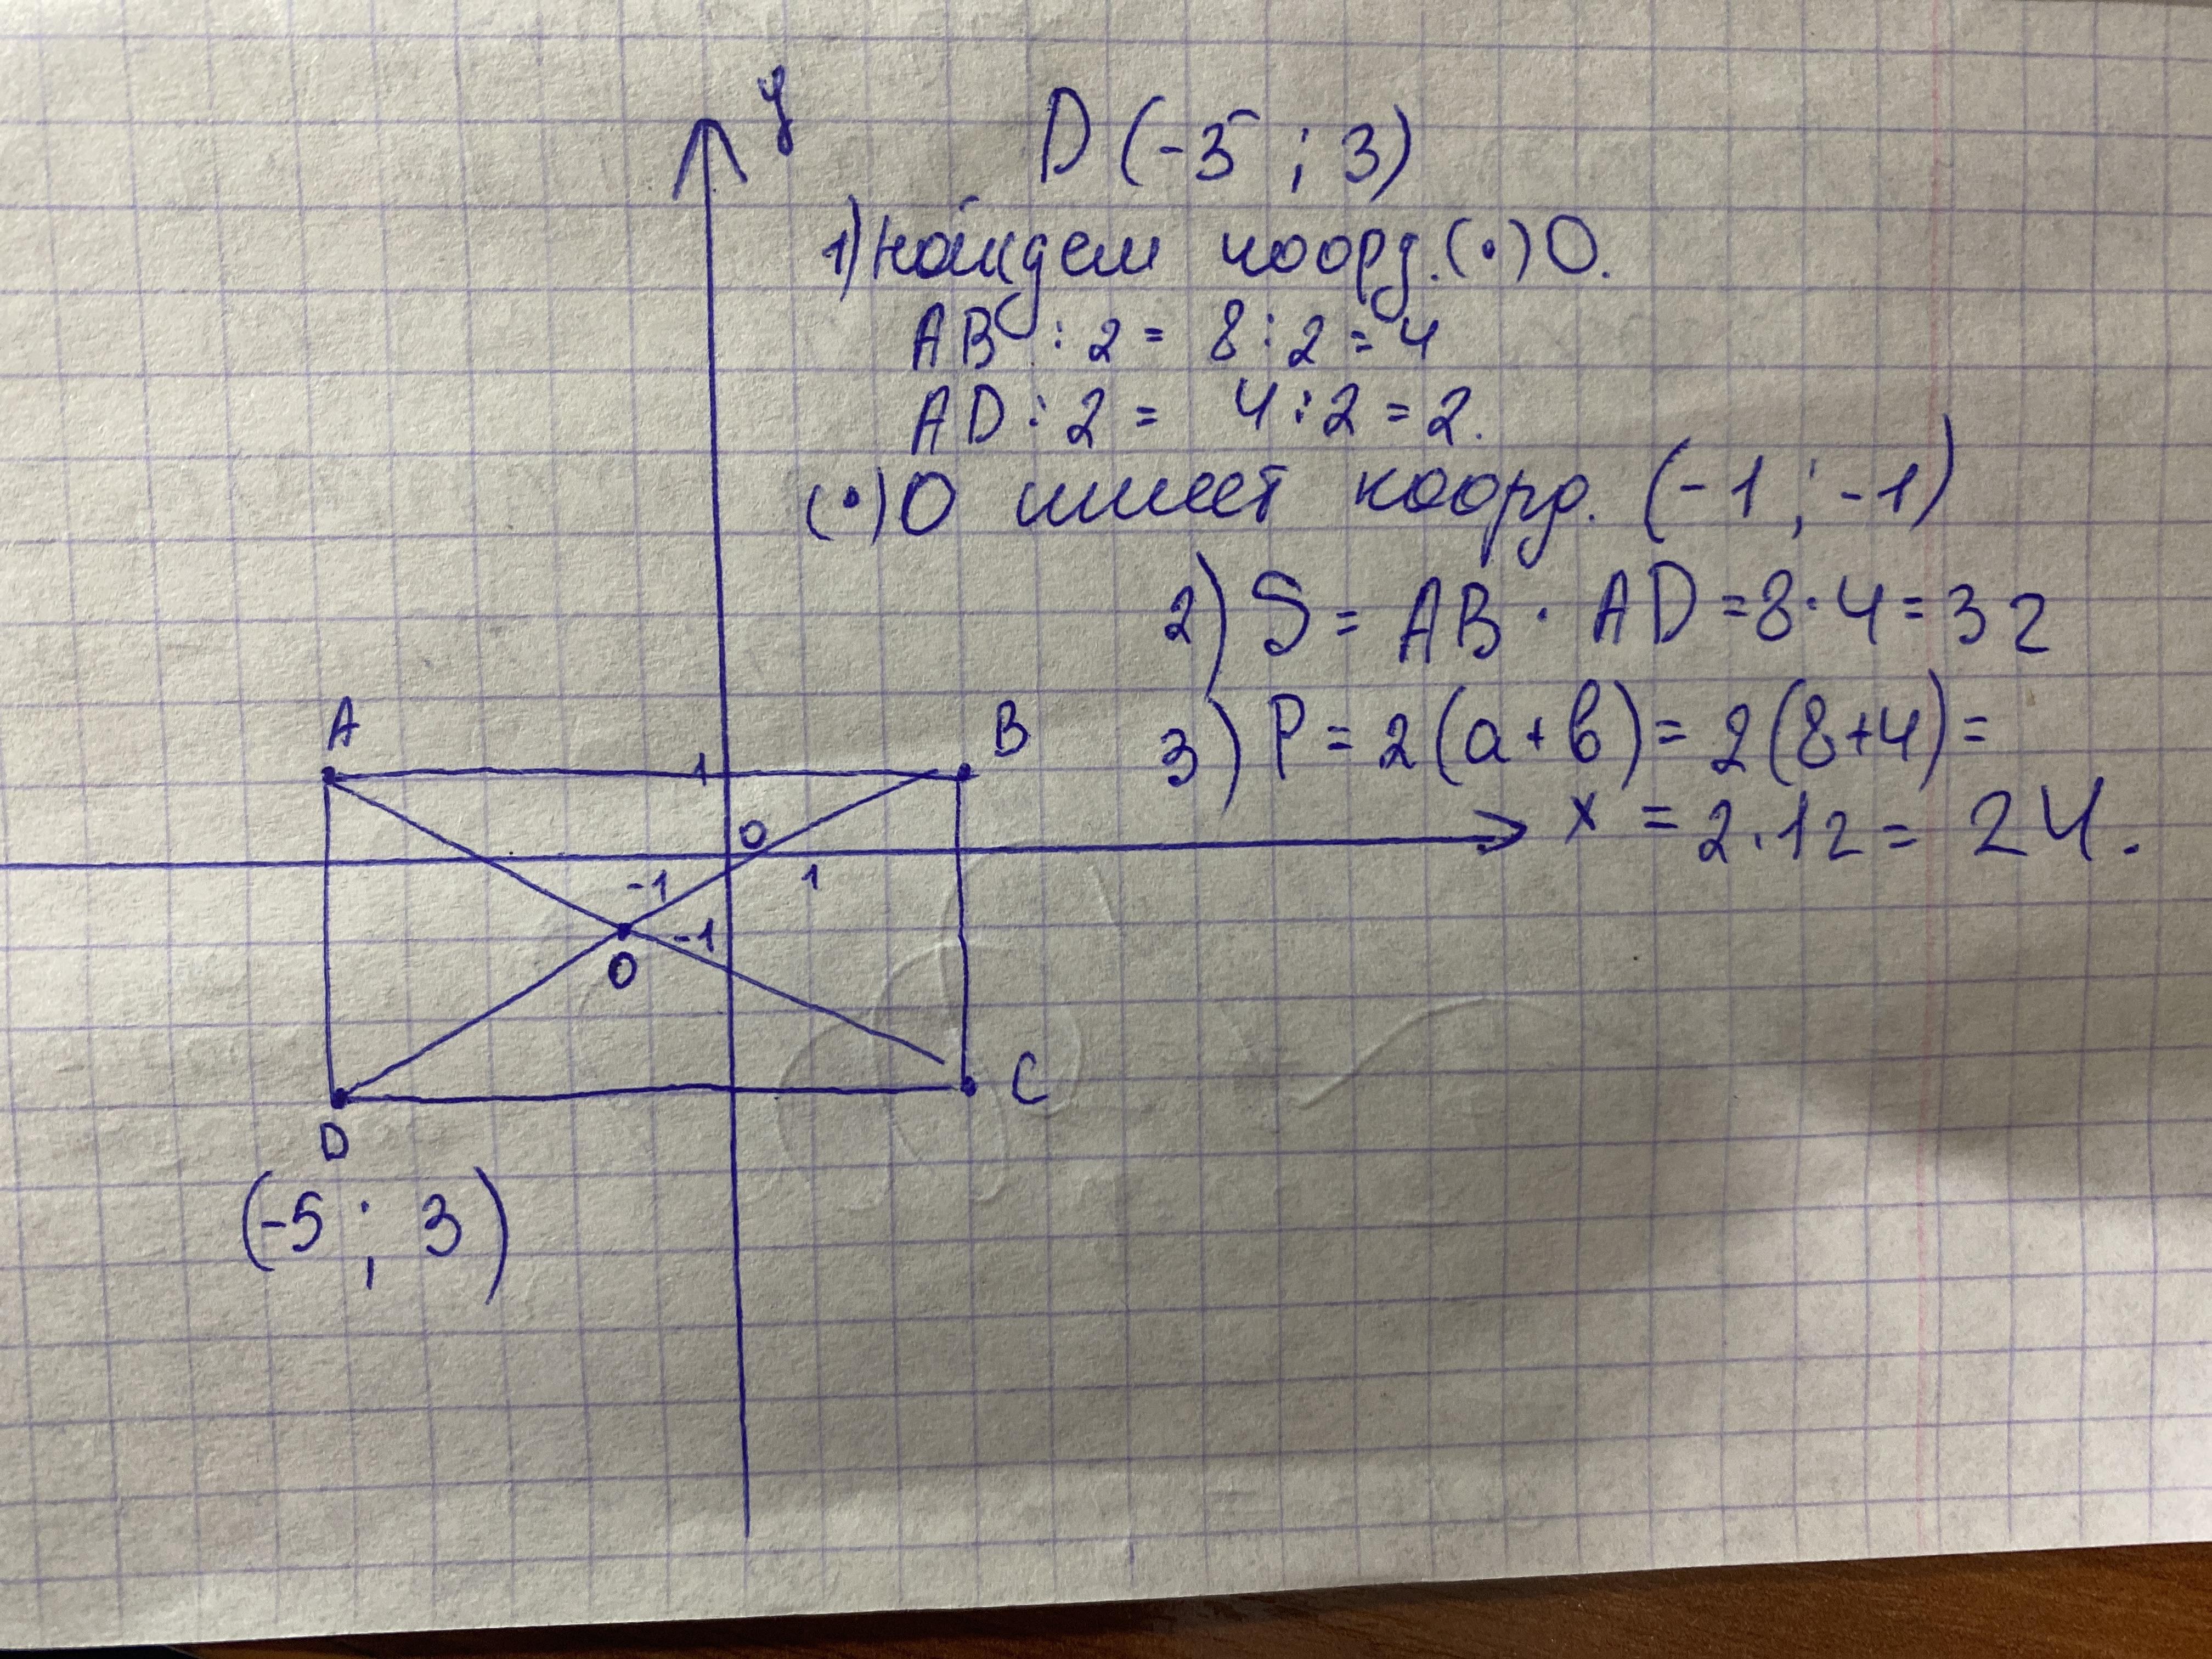 y
D (-5 ; 3)
1) найдем коорд. (•) О.
AB : 2 = 8 : 2 = 4
AD : 2 = 4 : 2 = 2.
(•) О имеет коорд. (-1 ; -1)
2) S = AB · AD = 8 · 4 = 32
3) P = 2(a + b) = 2(8+4) =
= 2 · 12 = 24.
x
A
B
1
O
-1
1
-1
O
D
C
(-5 ; 3)